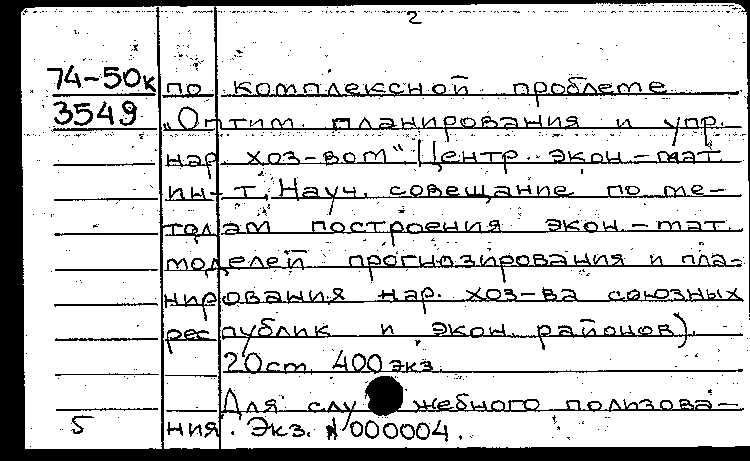 2
74-50к по комплексной проблеме
3549 „Оптим. планирования и упр.
нар. хоз-вом“. Центр. экон.-мат.
ин-т, Науч. совещание по ме-
тодам построения экон.-мат.
моделей прогнозирования и пла-
нирования нар. хоз-ва союзных
республик и экон. районов).
20см. 400 экз.
Для служебного пользова-
5 ния. Экз. №000004.